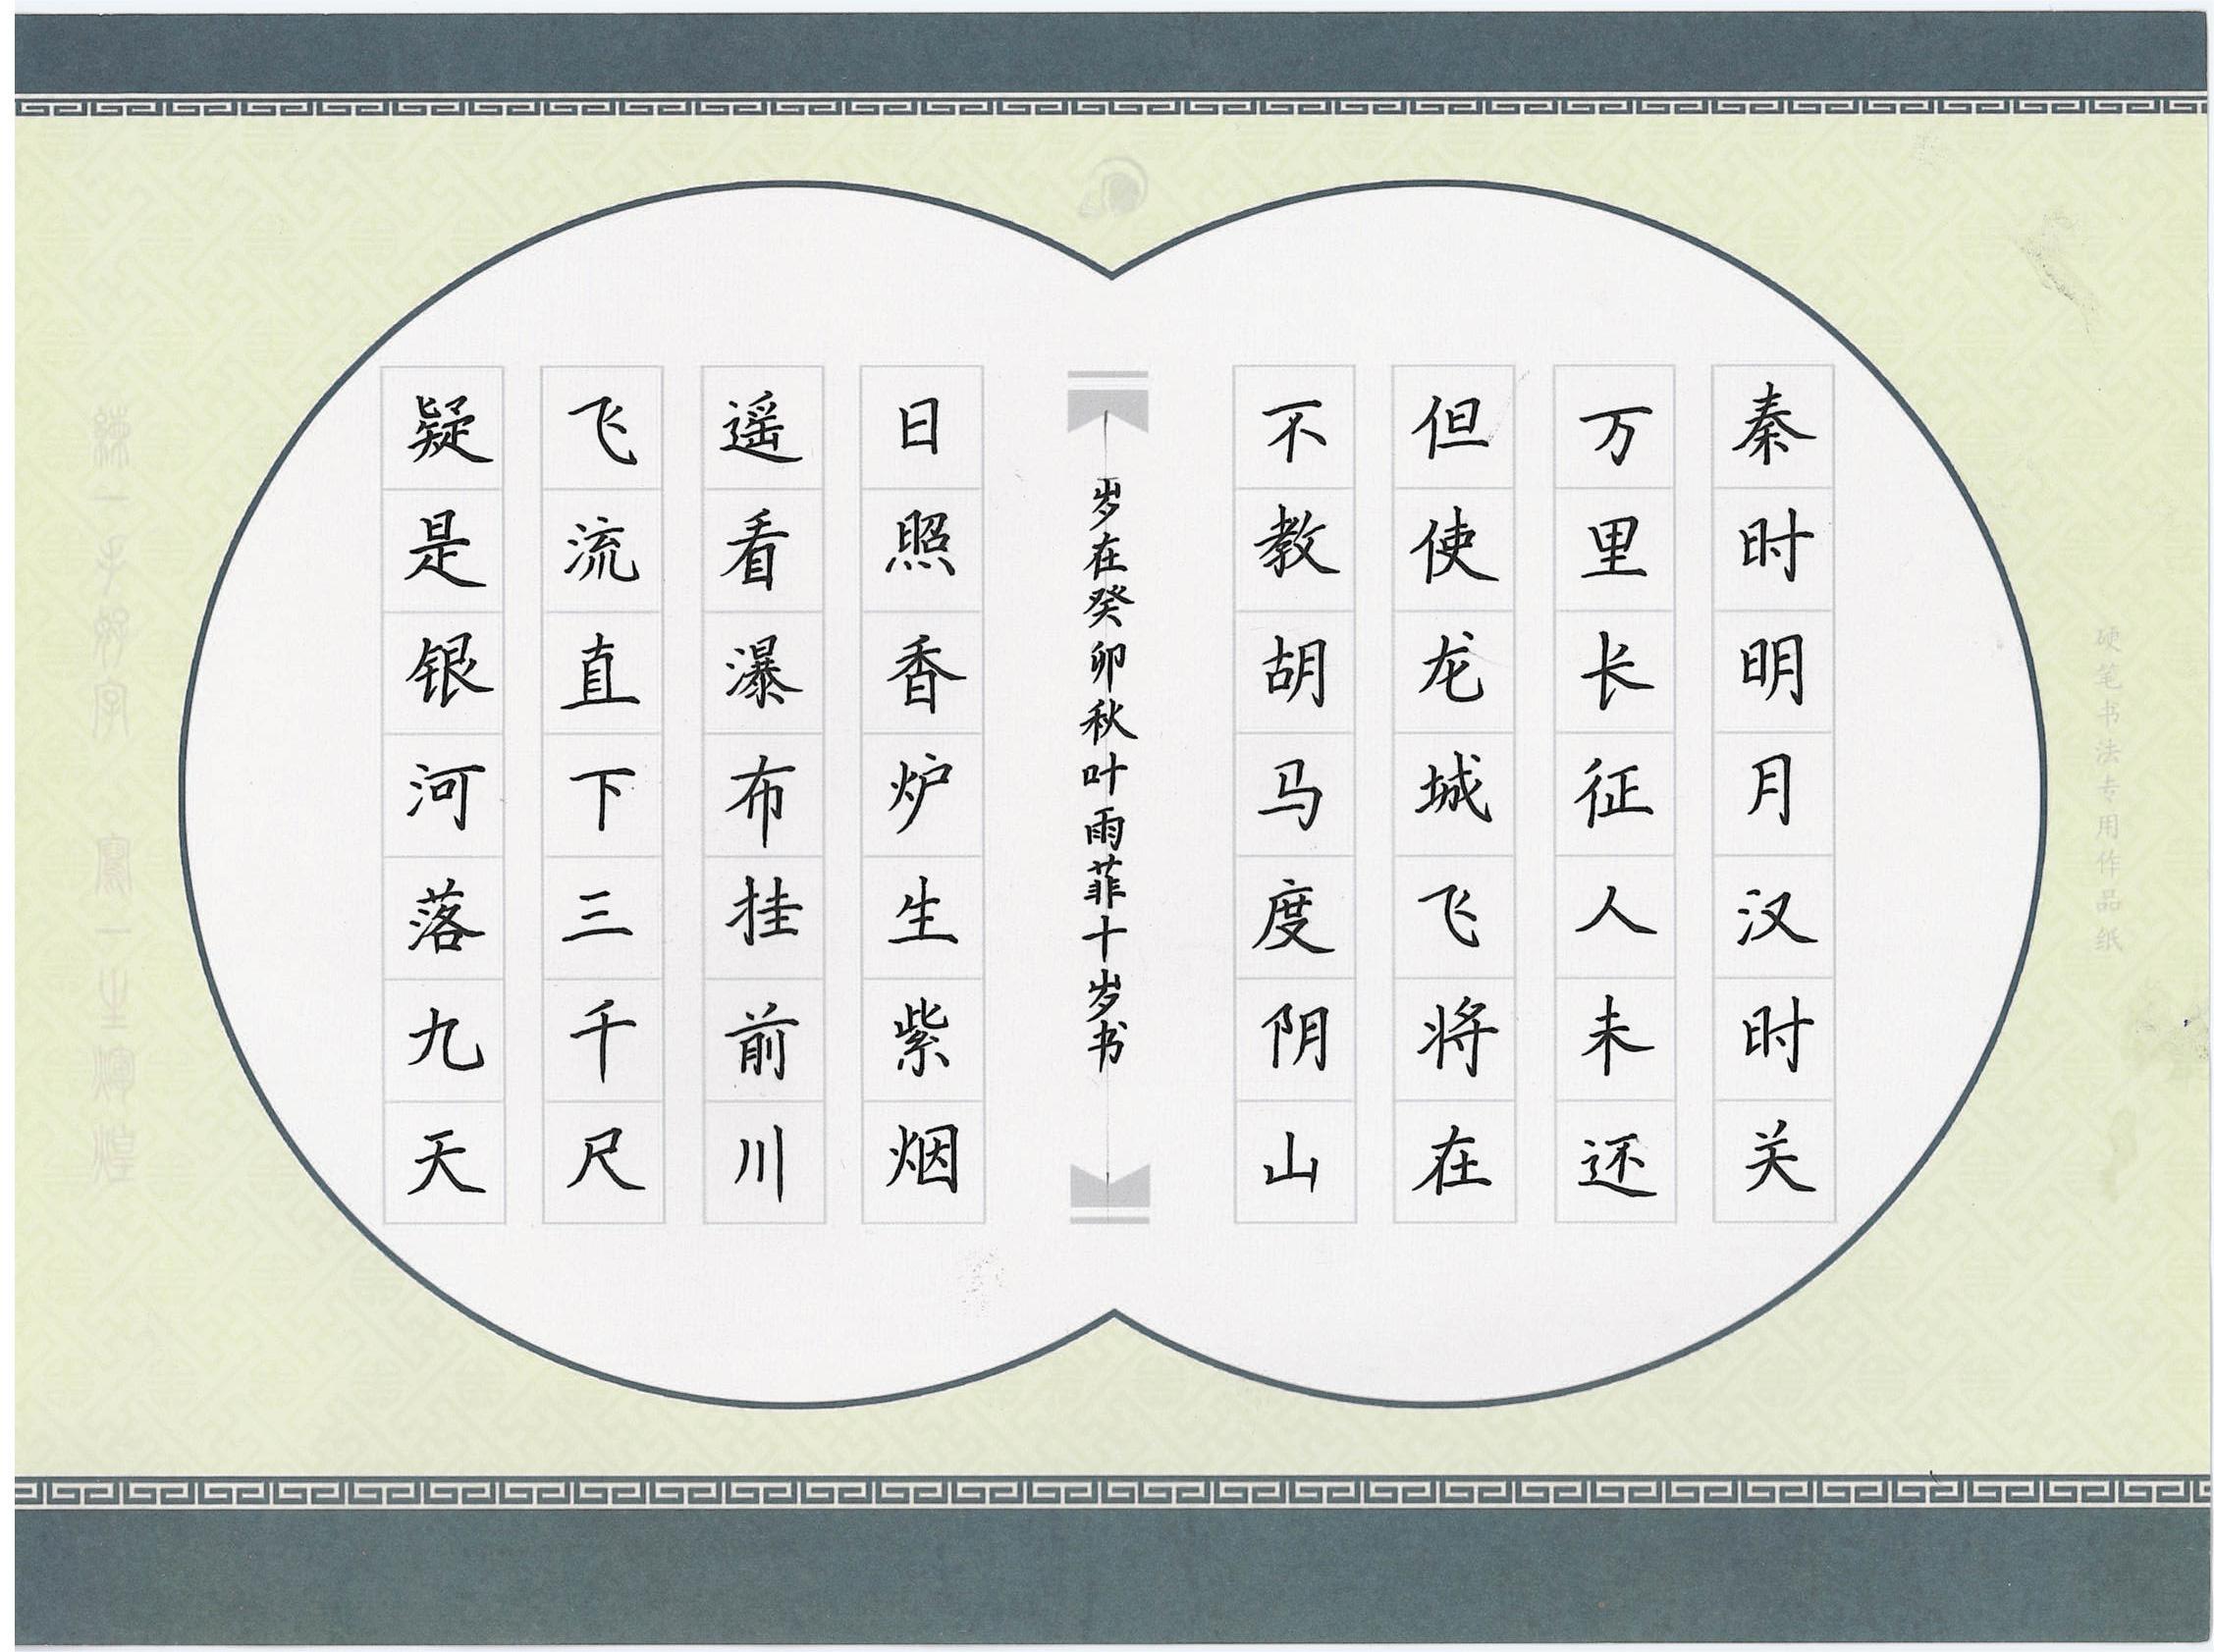 硬笔书法专用作品纸
秦时明月汉时关
万里长征人未还
但使龙城飞将在
不教胡马度阴山
岁在癸卯秋叶雨菲十岁书
日照香炉生紫烟
遥看瀑布挂前川
飞流直下三千尺
疑是银河落九天
練一手好字 寫一生煇煌